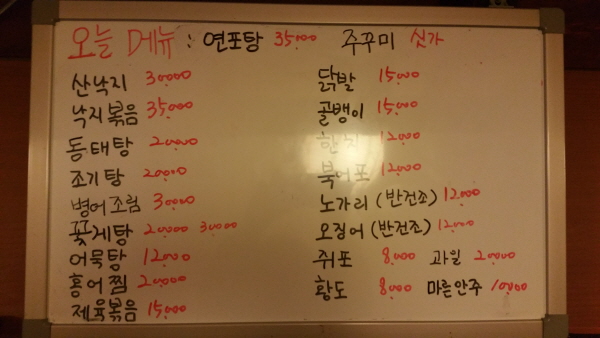 오늘 메뉴 : 연포탕 35000 주꾸미 싯가
산낙지 30000
낙지볶음 35000
동태탕 20000
조기탕 20000
병어조림 30000
꽃게탕 20000 30000
어묵탕 12000
홍어찜 20000
제육볶음 15000
닭발 15,000
골뱅이 15,000
한치 12,000
북어포 12,000
노가리 (반건조) 12,000
오징어 (반건조) 12,000
쥐포 8,000 과일 20000
황도 8,000 마른안주 10,000